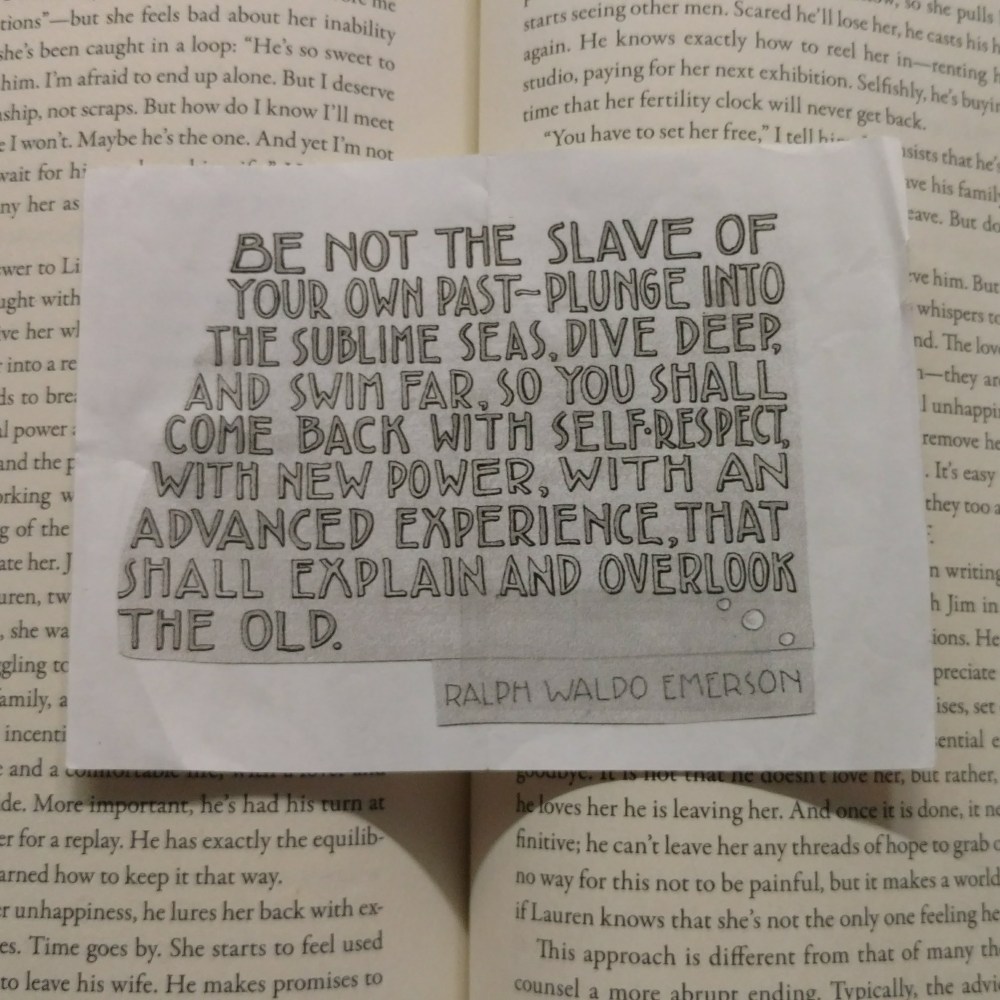 tions"—but she feels bad about her inability
she's been caught in a loop: "He's so sweet to
him. I'm afraid to end up alone. But I deserve
not scraps. But how do I know I'll meet
I won't. Maybe he's the one. And yet I'm not
wait for
her as
to
with
her
into a
power
and the
of the
her.
she
incenti
and a comfortable life, with a lover and
More important, he's had his turn at
for a replay. He has exactly the equilib-
how to keep it that way.
unhappiness, he lures her back with ex-
Time goes by. She starts to feel used
to leave his wife. He makes promises to
so she pulls
starts seeing other men. Scared he'll lose her, he casts his
again. He knows exactly how to reel her in—renting
studio, paying for her next exhibition. Selfishly, he's
time that her fertility clock will never get back.
"You have to set her free," I tell
that he's
his
But
him. But
whispers
The
they
I
remove
It's easy
they too
writing
Jim in
He
set
BE NOT THE SLAVE OF
YOUR OWN PAST-PLUNGE INTO
THE SUBLIME SEAS, DIVE DEEP,
AND SWIM FAR, SO YOU SHALL
COME BACK WITH SELF-RESPECT,
WITH NEW POWER, WITH AN
ADVANCED EXPERIENCE, THAT
SHALL EXPLAIN AND OVERLOOK
THE OLD.
RALPH WALDO EMERSON
goodbye. It is not that he doesn't love her, but rather,
he loves her he is leaving her. And once it is done, it
finitive; he can't leave her any threads of hope to grab
no way for this not to be painful, but it makes a world
if Lauren knows that she's not the only one feeling
This approach is different from that of many
counsel a more abrupt ending. Typically, the